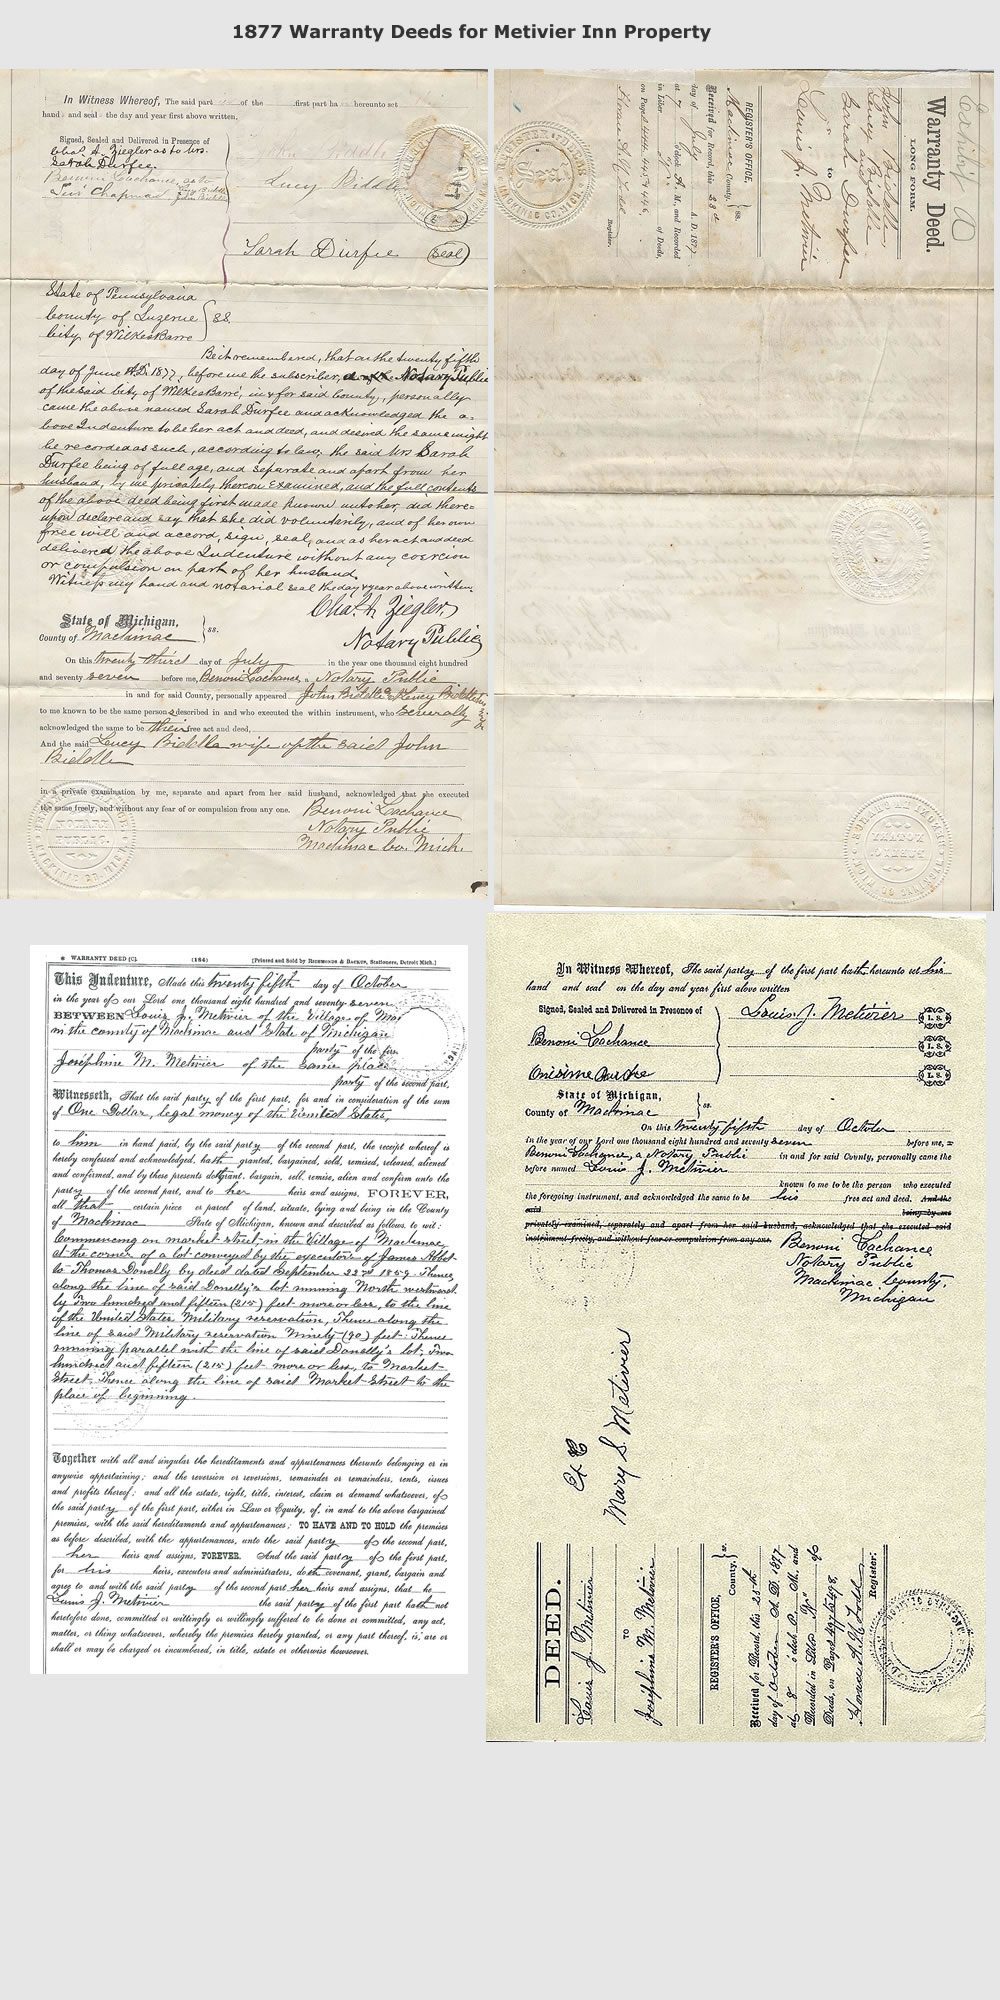 1877 Warranty Deeds for Metivier Inn Property
In Witness Whereof, The said part of the first part ha hereunto set
hand and seal the day and year first above written.
Signed, Sealed and Delivered in Presence of
Chas. H. Ziegler as to Mrs.
Sarah Durfee
Benoni Lachance, as to
Chapman
John Biddle
Lucy Biddle
Sarah Durfee Seal
State of Pennsylvania
County of Luzerne SS.
City of WilkesBarre
Be it remembered, that on the twenty fifth
day of June A.D. 1877, before me the subscriber, Notary Public
of the said City of WilkesBarre, in & for said County, personally
came the above named Sarah Durfee and acknowledged the a-
bove Indenture to be her act and deed, and desired the same might
be recorded as such, according to law; the said Mrs Sarah
Durfee being of full age, and separate and apart from her
husband, by me privately thereon examined, and the full contents
of the above deed being first made known unto her, did there-
upon declare and say that she did voluntarily, and of her own
free will and accord, sign, seal, and as her act and deed
delivered the above Indenture without any coercion
or compulsion on part of her husband.
Witness my hand and notarial seal the day & year above written.
Chas. H. Ziegler,
Notary Public
State of Michigan,
County of Mackinac ss.
On this twenty third day of July in the year one thousand eight hundred
and seventy seven before me, Benoni Lachance, a Notary Public
in and for said County, personally appeared John Biddle & Lucy Biddle
to me known to be the same persons described in and who executed the within instrument, who severally
acknowledged the same to be their free act and deed,
And the said Lucy Biddle wife of the said John
Biddle
in a private examination by me, separate and apart from her said husband, acknowledged that she executed
the same freely, and without any fear of or compulsion from any one.
Benoni Lachance
Notary Public
Mackinac Co. Mich.
NOTARY
PUBLIC
Warranty Deed.
LONG FORM.
John Biddle,
Lucy Biddle
and
Sarah Durfee
to
Louis J. Metivier
REGISTER'S OFFICE,
Mackinac County, ss.
Received for Record, this 23d
day of July A. D. 1877
at 7 o'clock A. M., and Recorded
in Liber of Deeds,
on Pages 444, 445 & 446,
Register.
WARRANTY DEED [C]. (164) [Printed and Sold by RICHMONDS & BACKUS, Stationers, Detroit Mich.]
This Indenture, Made this twenty fifth day of October
in the year of our Lord one thousand eight hundred and seventy-seven
BETWEEN Louis J. Metivier of the Village of
in the county of Mackinac and State of Michigan
party of the
Josephine M. Metivier of the same place
party of the second part,
Witnesseth, That the said party of the first part, for and in consideration of the sum
of One Dollar, legal money of the United States,
to him in hand paid, by the said party of the second part, the receipt whereof is
hereby confessed and acknowledged, hath granted, bargained, sold, remised, released, aliened
and confirmed, and by these presents doth grant, bargain, sell, remise, alien and confirm unto the
party of the second part, and to her heirs and assigns, FOREVER,
all that certain piece or parcel of land, situate, lying and being in the County
of Mackinac State of Michigan, known and described as follows, to wit:
Commencing on market street, in the Village of Mackinac,
at the corner of a lot conveyed by the executors of James Abbot
to Thomas Donelly by deed dated September 22nd 1859. Thence
along the line of said Donelly's lot running North westward
by Two hundred and fifteen (215) feet more or less, to the line
of the United States Military reservation, Thence along the
line of said Military reservation Ninety (90) feet: Thence
running parallel with the line of said Donelly's lot, Two
hundred and fifteen (215) feet more or less, to Market-
Street; Thence along the line of said Market-Street to the
place of beginning.
Together with all and singular the hereditaments and appurtenances thereunto belonging or in
anywise appertaining; and the reversion or reversions, remainder or remainders, rents, issues
and profits thereof; and all the estate, right, title, interest, claim or demand whatsoever, of
the said party of the first part, either in Law or Equity, of, in and to the above bargained
premises, with the said hereditaments and appurtenances; TO HAVE AND TO HOLD the premises
as before described, with the appurtenances, unto the said party of the second part,
her heirs and assigns, FOREVER. And the said party of the first part,
for his heirs, executors and administrators, doth covenant, grant, bargain and
agree to and with the said party of the second part her heirs and assigns, that he
Louis J. Metivier the said party of the first part hath not
heretofore done, committed or wittingly or willingly suffered to be done or committed, any act,
matter, or thing whatsoever, whereby the premises hereby granted, or any part thereof, is, are or
shall or may be charged or incumbered, in title, estate or otherwise howsoever.
In Witness Whereof, The said party of the first part hath hereunto set his
hand and seal on the day and year first above written
Signed, Sealed and Delivered in Presence of
Louis J. Metivier L. S.
Benoni Lachance L. S.
L. S.
State of Michigan,
County of Mackinac ss.
On this twenty fifth day of October
in the year of our Lord one thousand eight hundred and seventy seven before me,
Benoni Lachance, a Notary Public in and for said County, personally came the
before named Louis J. Metivier
known to me to be the person who executed
the foregoing instrument, and acknowledged the same to be his free act and deed. And the
said being by me
privately examined, separately and apart from her said husband, acknowledged that she executed said
instrument freely, and without fear or compulsion from any one.
Benoni Lachance
Notary Public
Mackinac County,
Michigan
Ex C
Mary S. Metivier
DEED.
Louis J. Metivier
TO
Josephine M. Metivier
REGISTER'S OFFICE,
County, ss.
Received for Record, this 25th
day of October A. D. 1877
at 8 o'clock A. M. and
Recorded in Liber of
Deeds, on Pages 497 & 498,
Register.